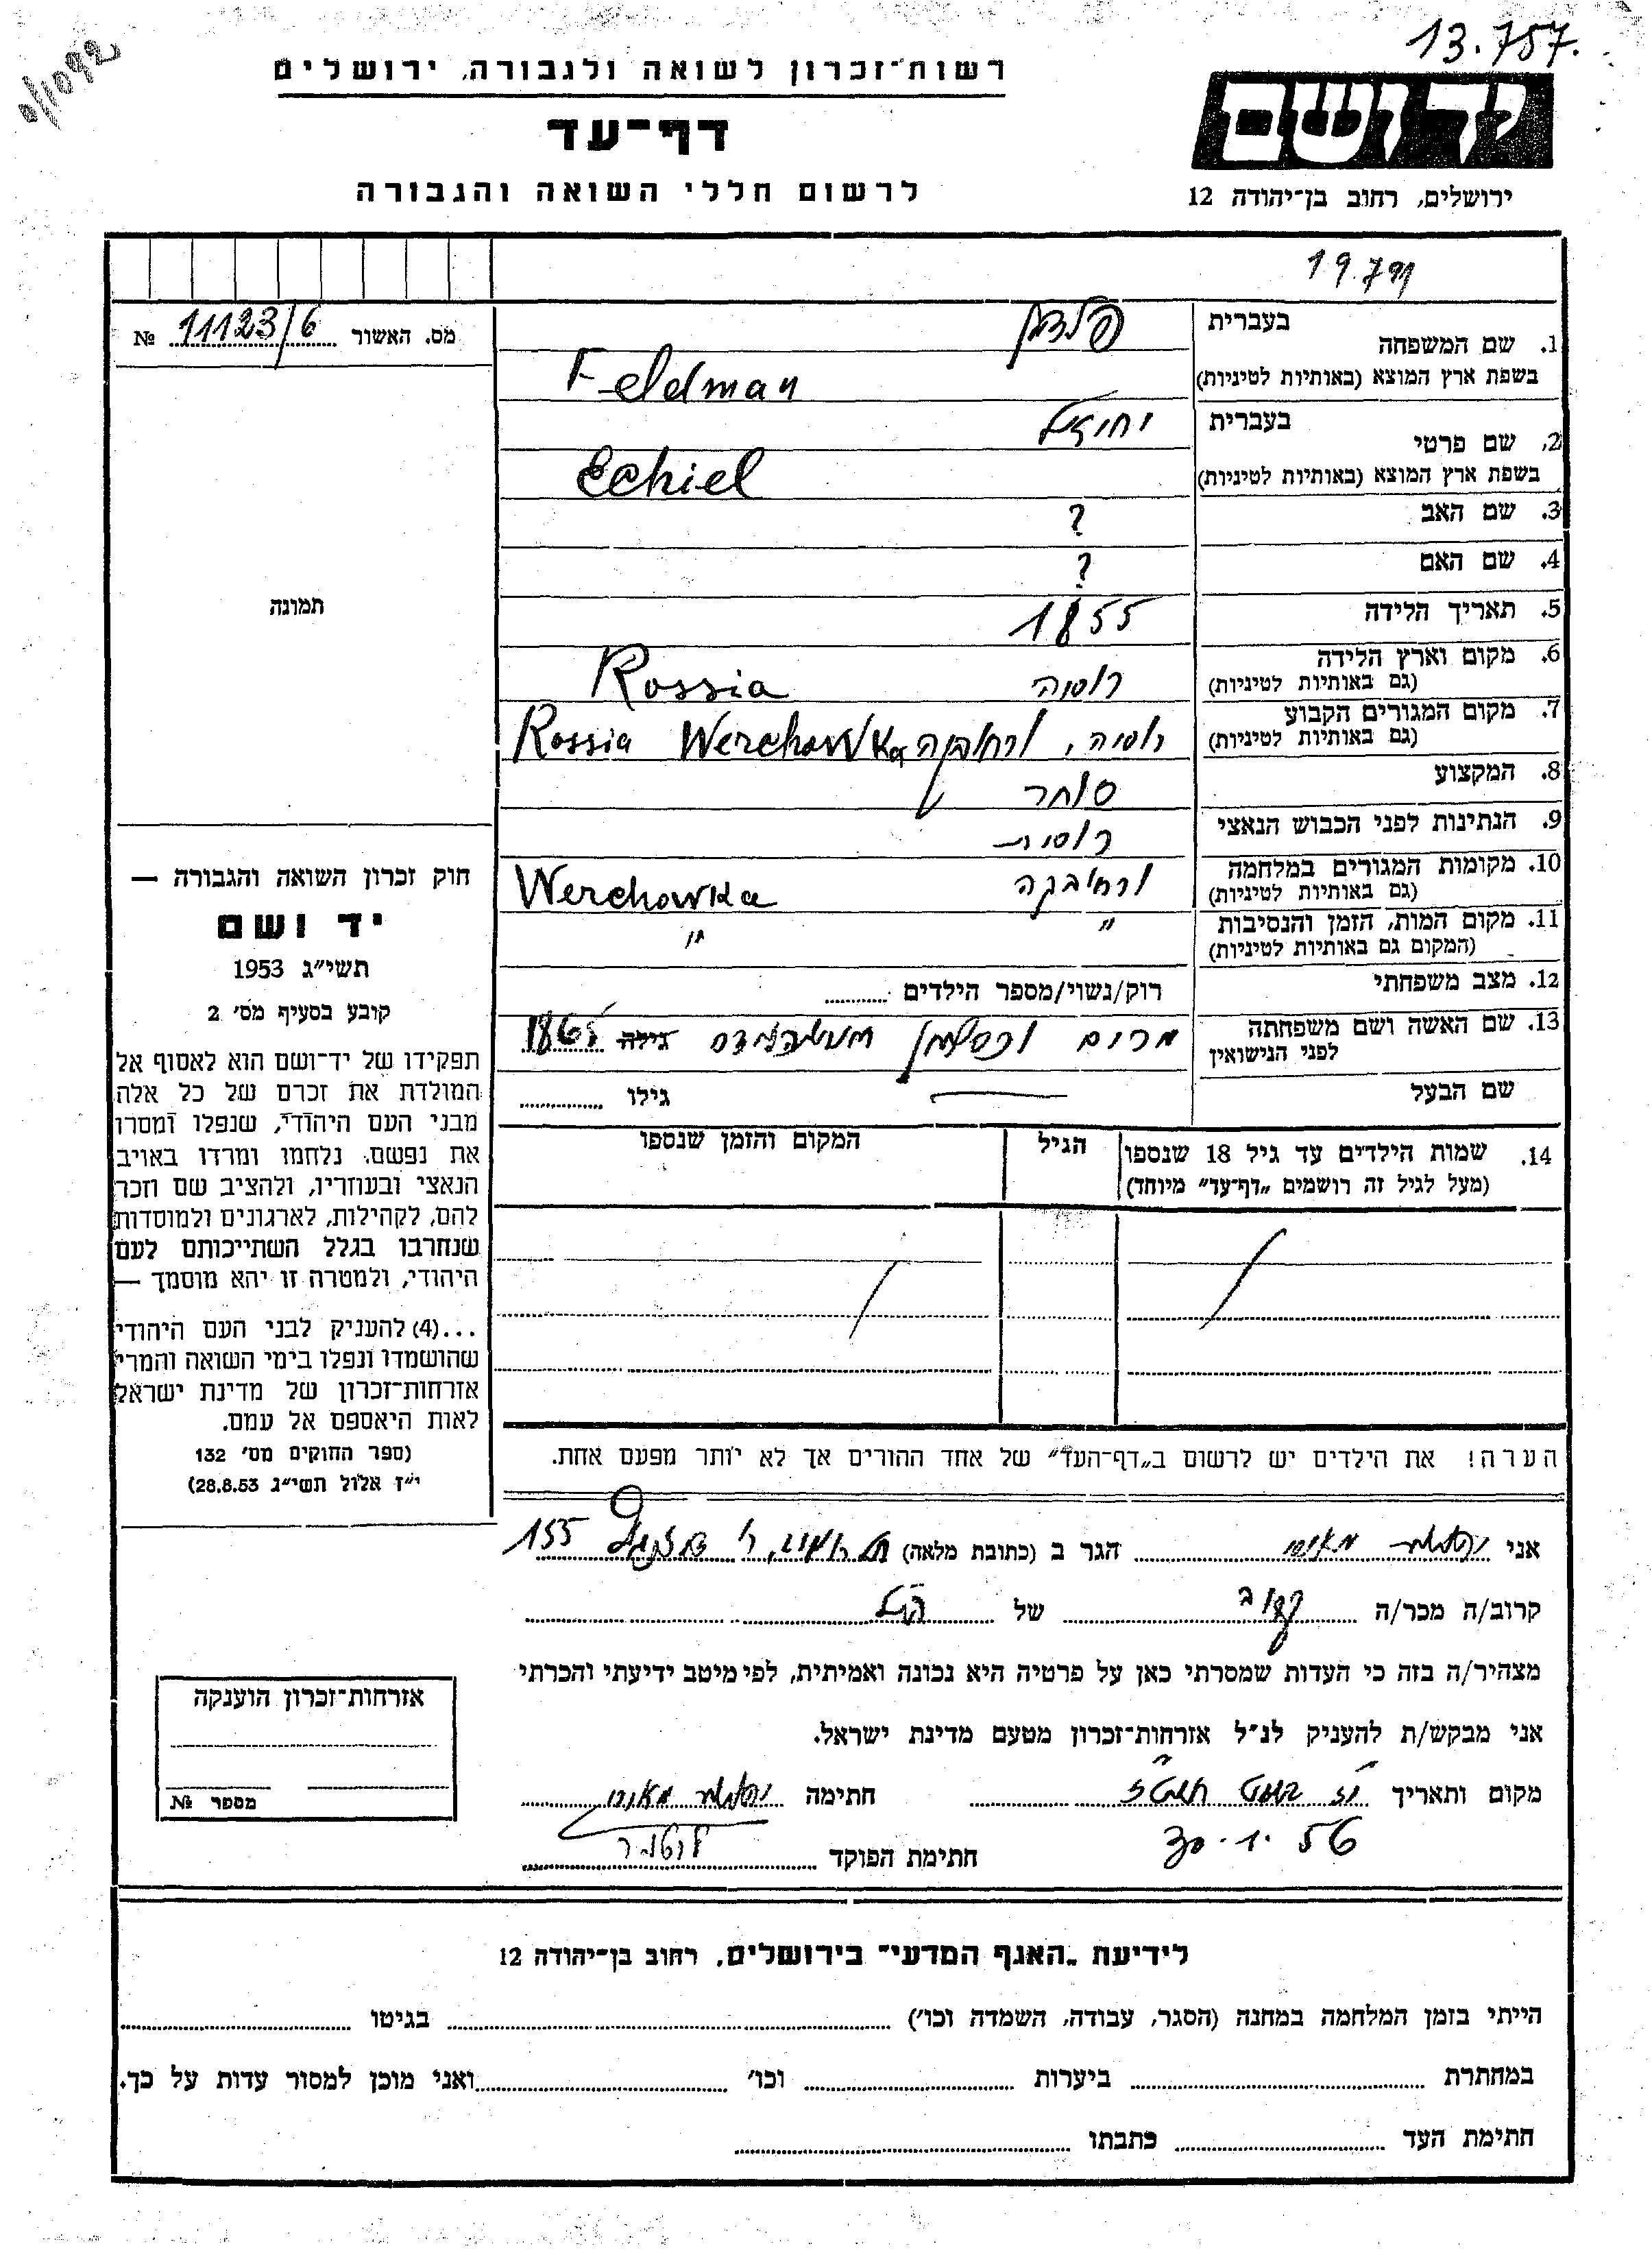 13.757.
רשות־זכרון לשואה ולגבורה, ירושלים
דף־עד
לרשום חללי השואה והגבורה
יד ושם
ירושלים, רחוב בן־יהודה 12
19.791
מס. האשור 11123/6 №
תמונה
1. שם המשפחה בעברית פלדמן
בשפת ארץ המוצא (באותיות לטיניות) Feldman
2. שם פרטי בעברית יחיאל
בשפת ארץ המוצא (באותיות לטיניות) Echiel
3. שם האב ?
4. שם האם ?
5. תאריך הלידה 1855
6. מקום וארץ הלידה (גם באותיות לטיניות) רוסיה Rossia
7. מקום המגורים הקבוע (גם באותיות לטיניות) רוסיה, ורחובקה Rossia Werchowka
8. המקצוע סוחר
9. הנתינות לפני הכבוש הנאצי רוסית
10. מקומות המגורים במלחמה (גם באותיות לטיניות) ורחובקה Werchowka
11. מקום המות, הזמן והנסיבות (המקום גם באותיות לטיניות) " "
12. מצב משפחתי רוק/נשוי/מספר הילדים
13. שם האשה ושם משפחתה לפני הנישואין מרים גילה 1865
שם הבעל — גילו
14. שמות הילדים עד גיל 18 שנספו הגיל המקום והזמן שנספו
(מעל לגיל זה רושמים „דף־עד" מיוחד)
הערה! את הילדים יש לרשום ב„דף־העד" של אחד ההורים אך לא יותר מפעם אחת.
חוק זכרון השואה והגבורה —
יד ושם
תשי״ג 1953
קובע בסעיף מס׳ 2
תפקידו של יד־ושם הוא לאסוף אל
המולדת את זכרם של כל אלה
מבני העם היהודי, שנפלו ומסרו
את נפשם, נלחמו ומרדו באויב
הנאצי ובעוזריו, ולהציב שם וזכר
להם, לקהילות, לארגונים ולמוסדות
שנחרבו בגלל השתייכותם לעם
היהודי, ולמטרה זו יהא מוסמך —
...(4) להעניק לבני העם היהודי
שהושמדו ונפלו בימי השואה והמרי
אזרחות־זכרון של מדינת ישראל
לאות היאספם אל עמם.
(ספר החוקים מס׳ 132
י״ז אלול תשי״ג 28.8.53)
אני הגר ב (כתובת מלאה) 155
קרוב/ה מכר/ה קרוב של הנ"ל
מצהיר/ה בזה כי העדות שמסרתי כאן על פרטיה היא נכונה ואמיתית, לפי מיטב ידיעתי והכרתי
אני מבקש/ת להעניק לנ״ל אזרחות־זכרון מטעם מדינת ישראל.
מקום ותאריך חתימה
30.1.56
חתימת הפוקד
אזרחות־זכרון הוענקה
מספר №
לידיעת „האגף המדעי" בירושלים, רחוב בן־יהודה 12
הייתי בזמן המלחמה במחנה (הסגר, עבודה, השמדה וכו׳) בגיטו
במחתרת ביערות וכו׳ ואני מוכן למסור עדות על כך.
חתימת העד כתבתו